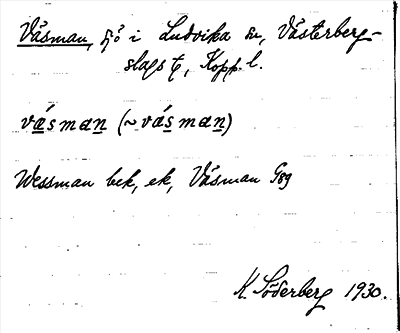 Väsman, sjö i Ludvika sn, Västerberg-
slags tg, Kopp. l.
vá̱smaṉ (~vás̱maṉ)
Wessman bek, ek, Väsman G89
K. Söderberg 1930.